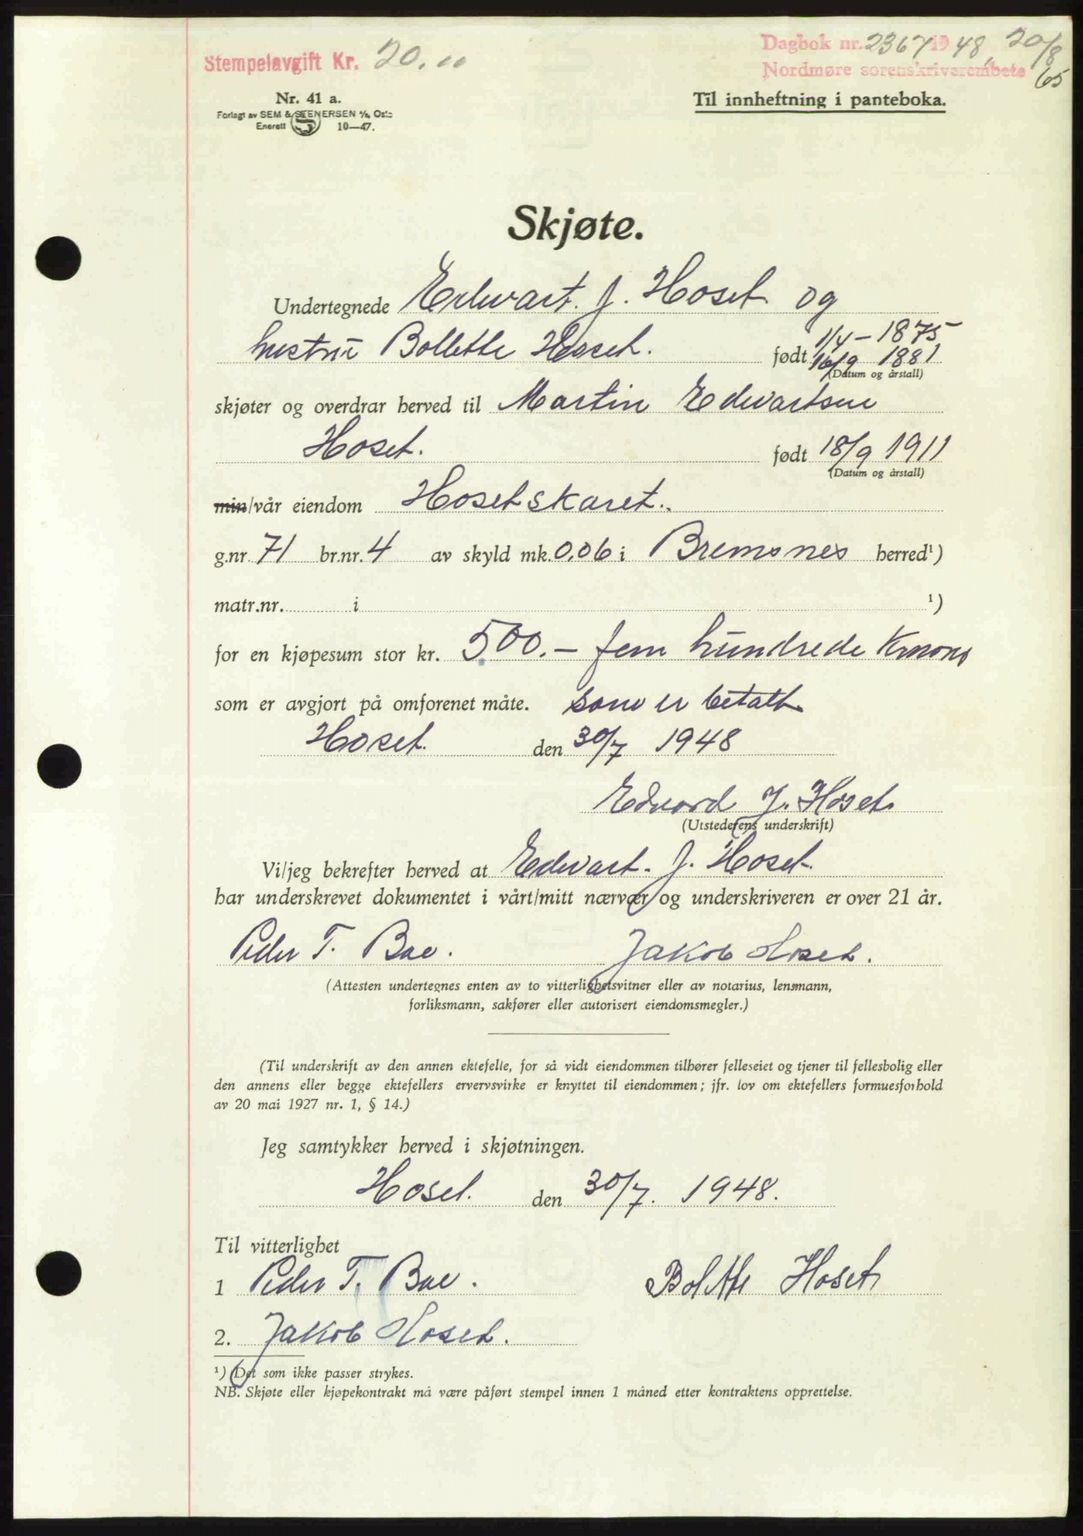 Stempelavgift Kr. 20.00
Dagbok nr. 2367 1948, 20/8
Nordmøre sorenskriverembete
65
Nr. 41 a.
Forlagt av SEM & STENERSEN A/S, Oslo
Enerett S 10—47.
Til innheftning i panteboka.
Skjøte.
Undertegnede Edvart. J. Hoset og
hustru Bollette Hoset. født 1/4 - 1875
16/9 1881
(Datum og årstall)
skjøter og overdrar herved til Martin Edvartsen
Hoset. født 18/9 1911
(Datum og årstall)
min/vår eiendom Hosetskaret.
g.nr. 71 br.nr. 4 av skyld mk. 0,06 i Bremsnes herred¹)
matr.nr. i ¹)
for en kjøpesum stor kr. 500.- fem hundrede Kroner
som er avgjort på omforenet måte. som er betalt
Hoset. den 30/7 1948
Edvard J. Hoset
(Utstederens underskrift)
Vi/jeg bekrefter herved at Edvart. J. Hoset.
har underskrevet dokumentet i vårt/mitt nærvær og underskriveren er over 21 år.
Peder T. Bae. Jakob Hoset.
(Attesten undertegnes enten av to vitterlighetsvitner eller av notarius, lensmann,
forliksmann, sakfører eller autorisert eiendomsmegler.)
(Til underskrift av den annen ektefelle, for så vidt eiendommen tilhører felleseiet og tjener til fellesbolig eller
den annens eller begge ektefellers ervervsvirke er knyttet til eiendommen; jfr. lov om ektefellers formuesforhold
av 20 mai 1927 nr. 1, § 14.)
Jeg samtykker herved i skjøtningen.
Hoset. den 30/7. 1948.
Til vitterlighet
1 Peder T. Bae. Bolette Hoset
2. Jakob Hoset.
¹) Det som ikke passer strykes.
NB. Skjøte eller kjøpekontrakt må være påført stempel innen 1 måned etter kontraktens opprettelse.